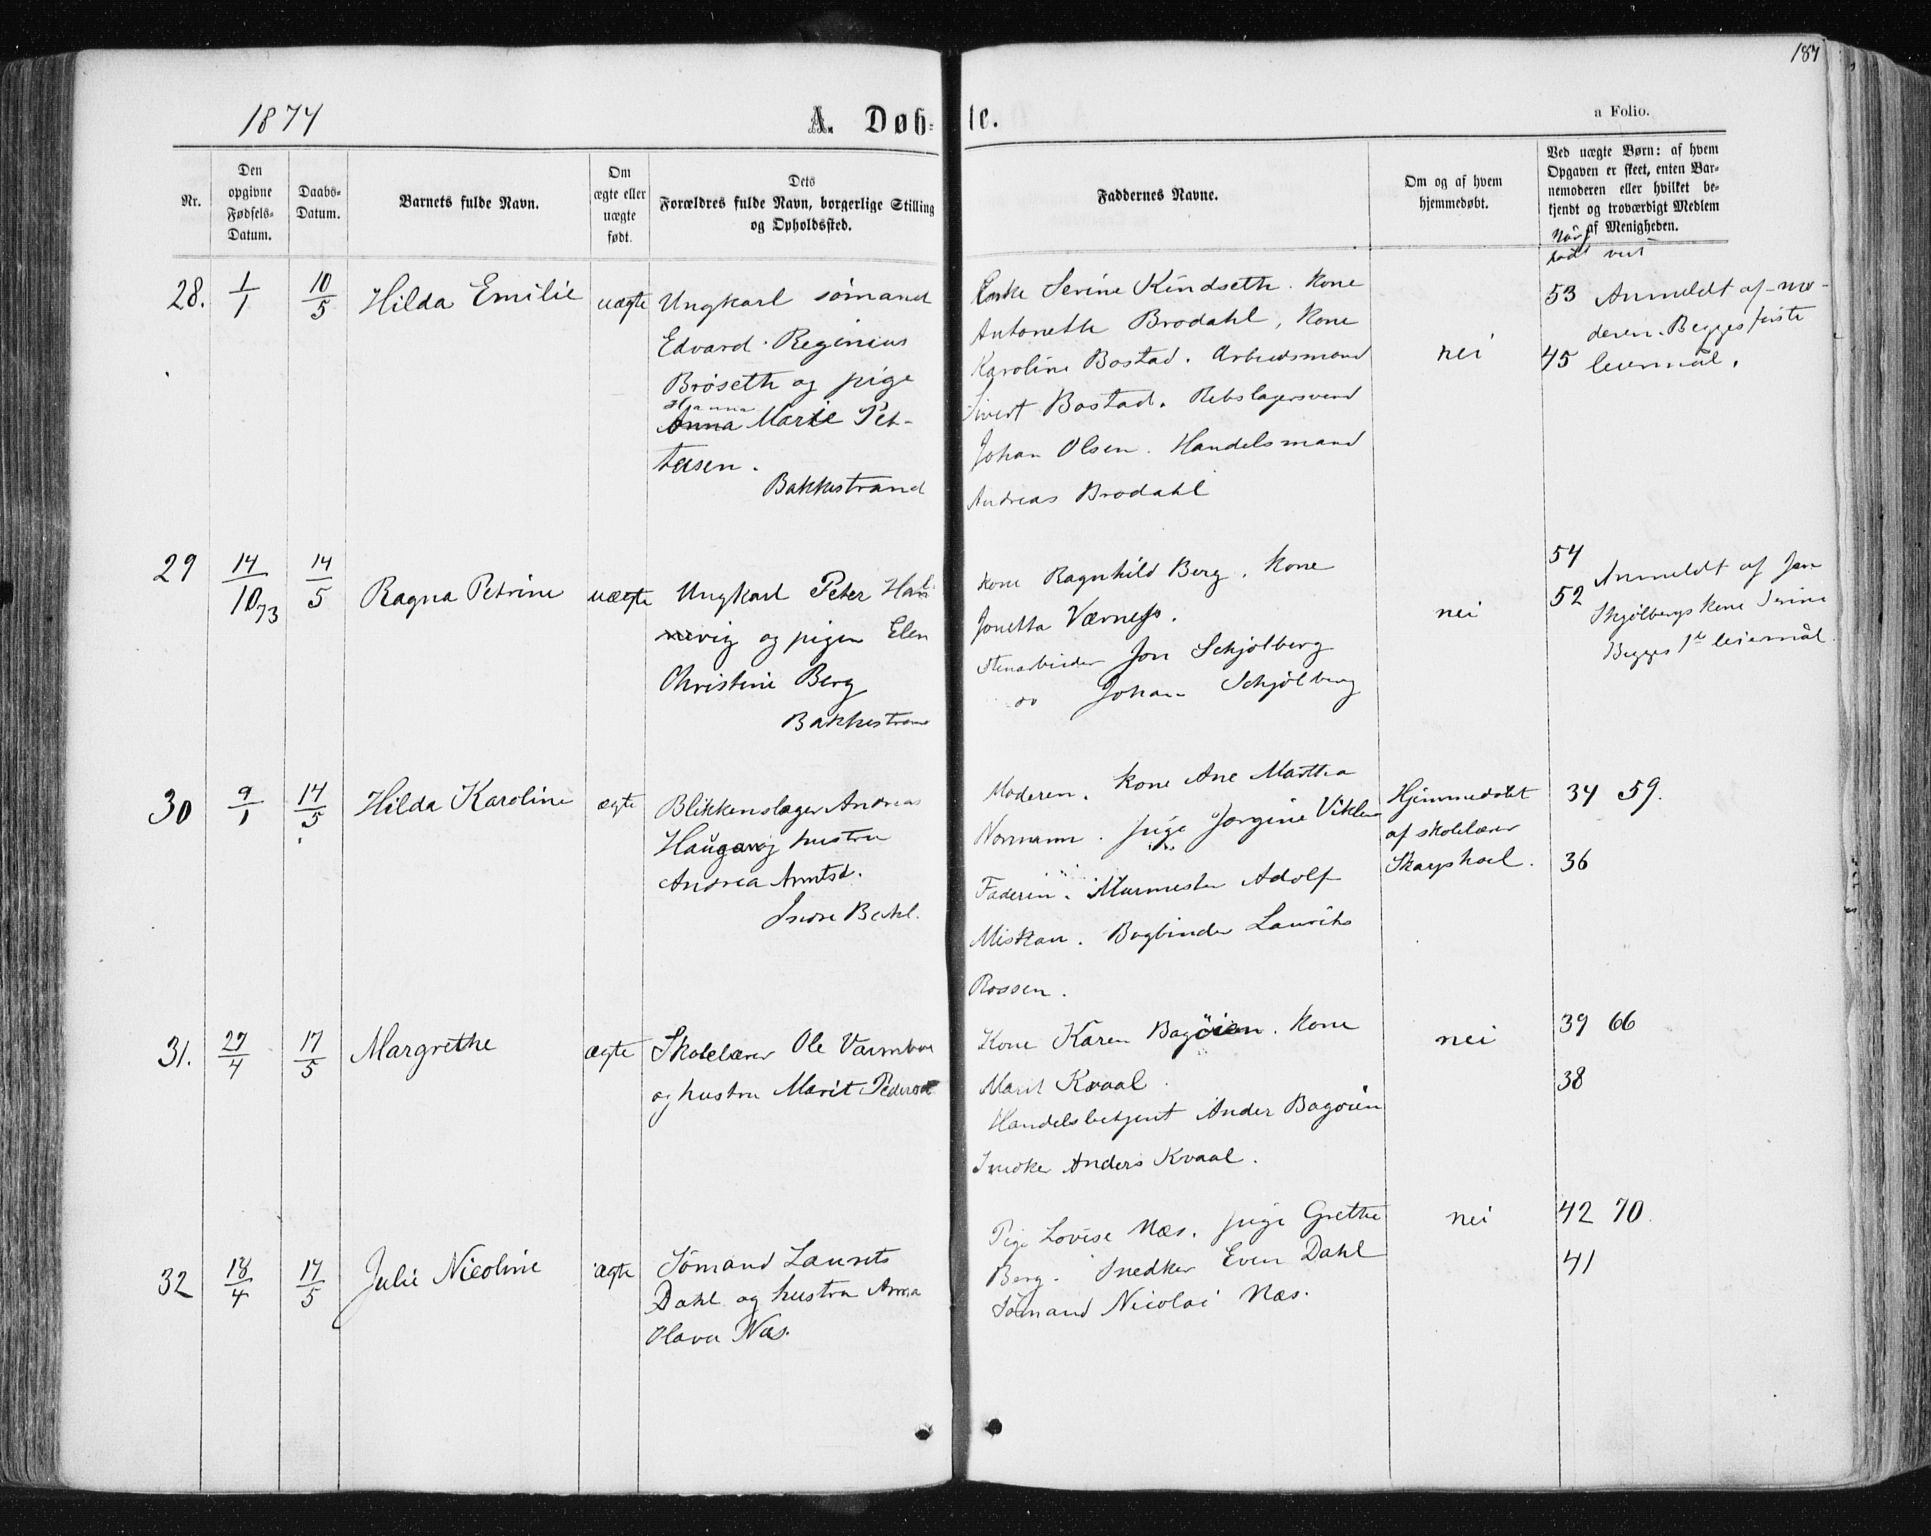 187
1874
A. Døb-
te.
a Folio.
Nr.
Den
opgivne
Fødsels-
Datum.
Daabs-
Datum.
Barnets fulde Navn.
Om
ægte eller
uægte
født.
Dets
Forældres fulde Navn, borgerlige Stilling
og Opholdssted.
Faddernes Navne.
Om og af hvem
hjemmedøbt.
Ved uægte Børn: af hvem
Opgaven er skeet, enten Bar-
nemoderen eller hvilket be-
kjendt og troværdigt Medlem
af Menigheden.
28.
1/1
10/5
Hilda Emilie
uægte
Ungkarl sømand
Edvard Reginius
Brøseth og pige
Hanna
Anna Marie Pet-
tersen.
Bakkestrand
Enke Serine Kindseth. Kone
Antonette Brodahl, Kone
Karoline Bostad. Arbeidsmand
Sivert Bostad. Rebslagersvend
Johan Olsen. Handelsmand
Andreas Brodahl
nei
53 Anmeldt af mo-
deren. Begges første
45 leiermål.
29
14/10 73
14/5
Ragna Petrine
uægte
Ungkarl Peter
og pigen Elen
Christine Berg
Bakkestrand
Kone Ragnhild Berg. Kone
Jonetta Værness.
Stenarbeider Jon Schjølberg
do Johan Schjølberg
nei
54
52
Anmeldt af Jon
Skjølbergs kone Serine
Begges 1ste leiermål.
30
9/1
14/5
Hilda Karoline
ægte
Blikkenslager Andreas
Haugan og hustru
Andrea Arntsd.
Indre Bakl.
Moderen. Kone Ane Martha
Normann. pige Jørgine Viklem
Faderen. Murmester Adolf
Miskau. Bogbinder Lauriths
Rossen.
Hjemmedøbt
af skolelærer
Skarpholl.
34 59.
36
31.
27/4
17/5
Margrethe
ægte
Skolelærer Ole Varmboe
og hustru Marit Pedersd
Kone Karen Bagøien. Kone
Marit Kvaal.
Handelsbetjent Ander Bagøien
Snedker Anders Kvaal.
nei
39 66
38
32
18/4
17/5
Julie Nicoline
ægte
Sømand Laurits
Dahl og hustru Anna
Olava Næs.
Pige Lovise Næs. pige Grethe
Berg. Snedker Even Dahl
Sømand Nicolai Næs.
nei
42 70.
41